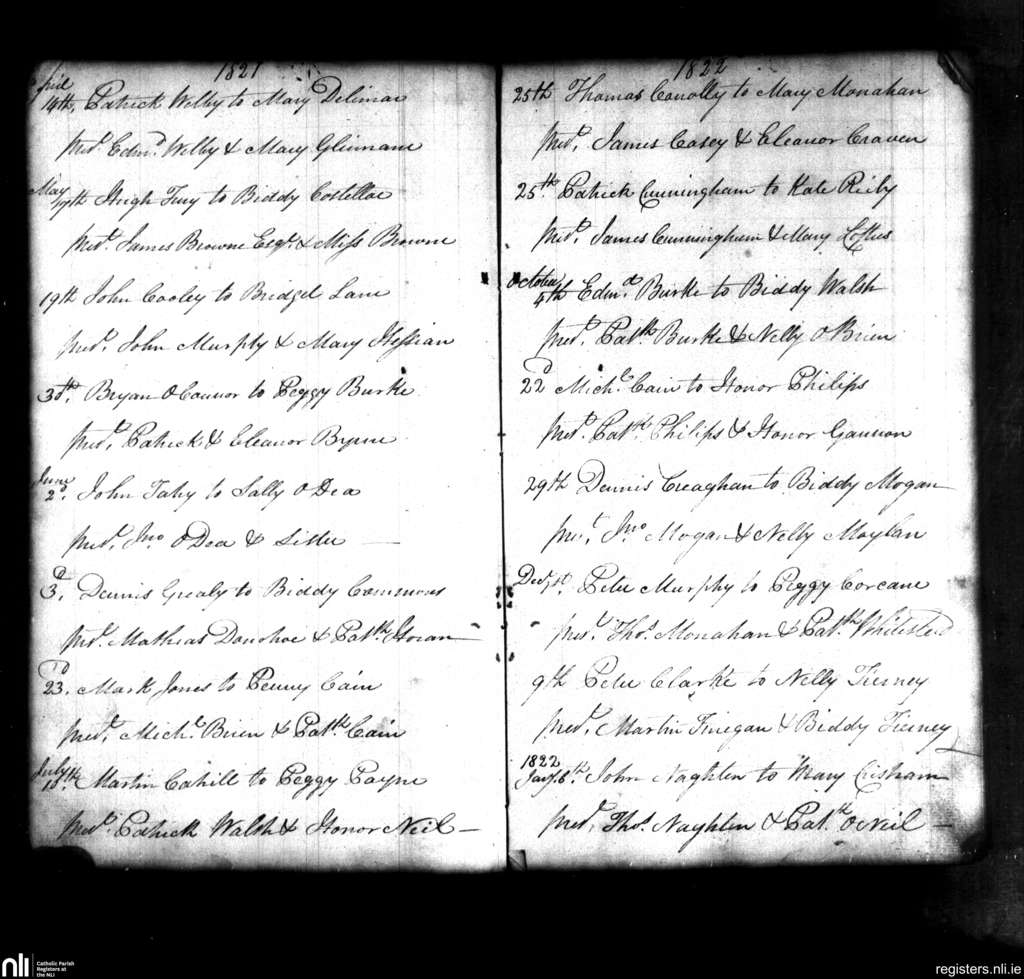 1821
April
14th, Patrick Welby to Mary
prest. Edmd. Welby & Mary
May
17th Hugh Fury to Biddy Costelloe
prest. James Browne Esqr. & Miss Browne
19th John Cooley to Bridget Lane
prest. John Murphy & Mary Hession
30th. Bryan O Connor to Peggy Burke
prest. Patrick & Eleanor Byrne
June
2d. John Fahy to Sally O Dea
prest. Jno O Dea & Sister
3d. Dennis Grealy to Biddy Commons
prest. Mathias Donohoe & Cathh. Horan
23d. Mark Jones to Penny Cain
prest. Michl. Brien & Cathh. Cain
July
10th. Martin Cahill to Peggy Payne
prest. Patrick Walsh & Honor Neil —
1822
25th Thomas Conolly to Mary Monahan
prest. James Casey & Eleanor Craven
25th. Patrick Cunningham to Kate
prest. James Cunningham & Mary Loftus
October
4th Edmd. Burke to Biddy Walsh
prest. Cathh. Burke & Nelly O Brien
22d Michl. Cain to Honor Philips
prest. Cath. Philips & Honor Gannon
29th Dennis Creaghan to Biddy Mogan
prest. Jno. Mogan & Nelly Moylan
Decr. 1st. Peter Murphy to Peggy Corcane
prest. Thos. Monahan & Cathh.
9th Peter Clarke to Nelly Tierney
prest. Martin Finegan & Biddy Tierney
1822
Jany. 8th. John Naghten to Mary
prest. Thos. Naghten & Cath. O Neil —
nli
Catholic Parish
Registers at
the NLI
registers.nli.ie